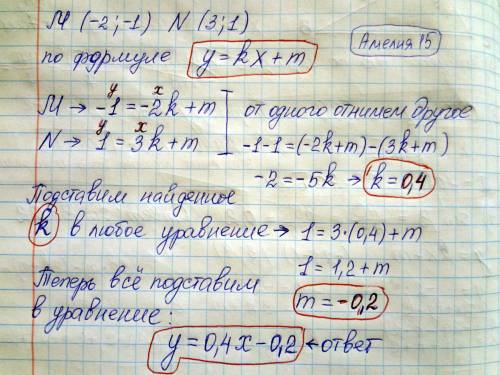 M (-2;-1) N (3;1)
по формуле y=kx+m
Амелия 15
M → -1=-2k+m
y x
N → 1=3k+m
y x
от одного отнимем другое
-1-1=(-2k+m)-(3k+m)
-2=-5k → k=0,4
Подставим найденное
k в любое уравнение → 1=3·(0,4)+m
1=1,2+m
m=-0,2
Теперь всё подставим
в уравнение:
y=0,4x-0,2 ← ответ